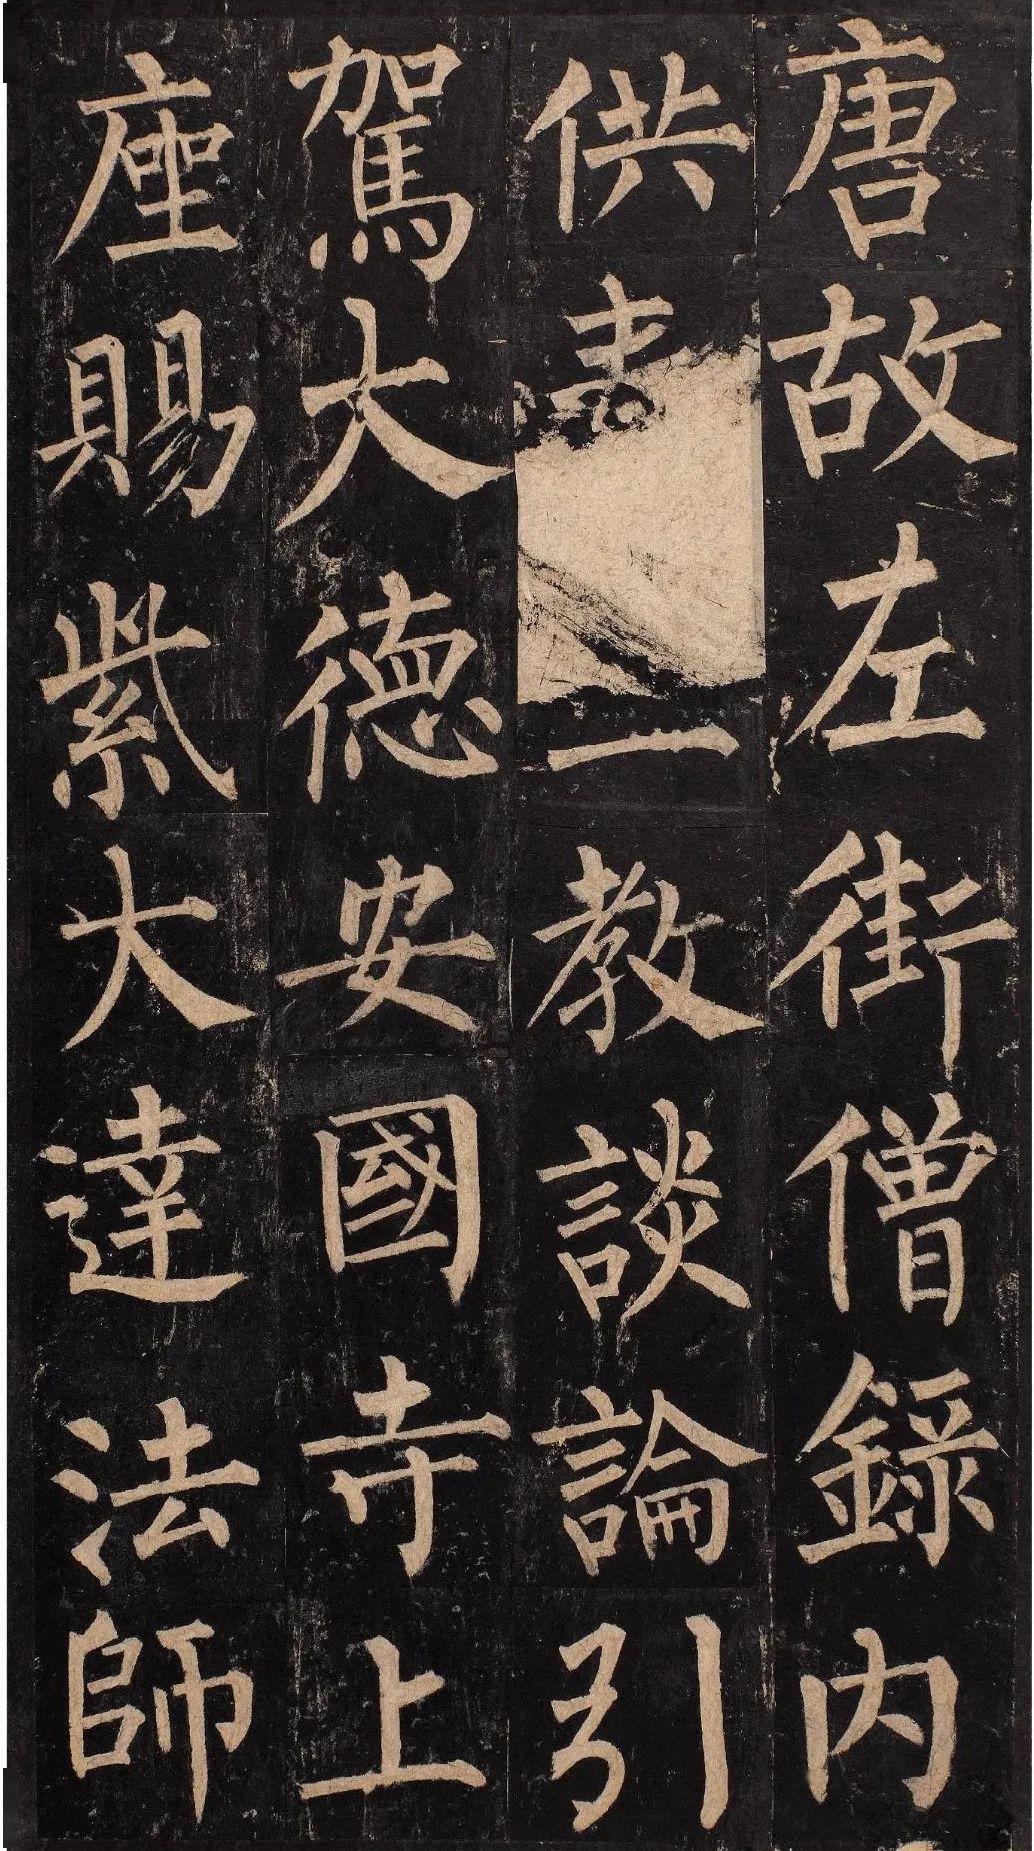 唐故左街僧錄內
供教談論引
駕大德安國寺上
座賜紫大達法師